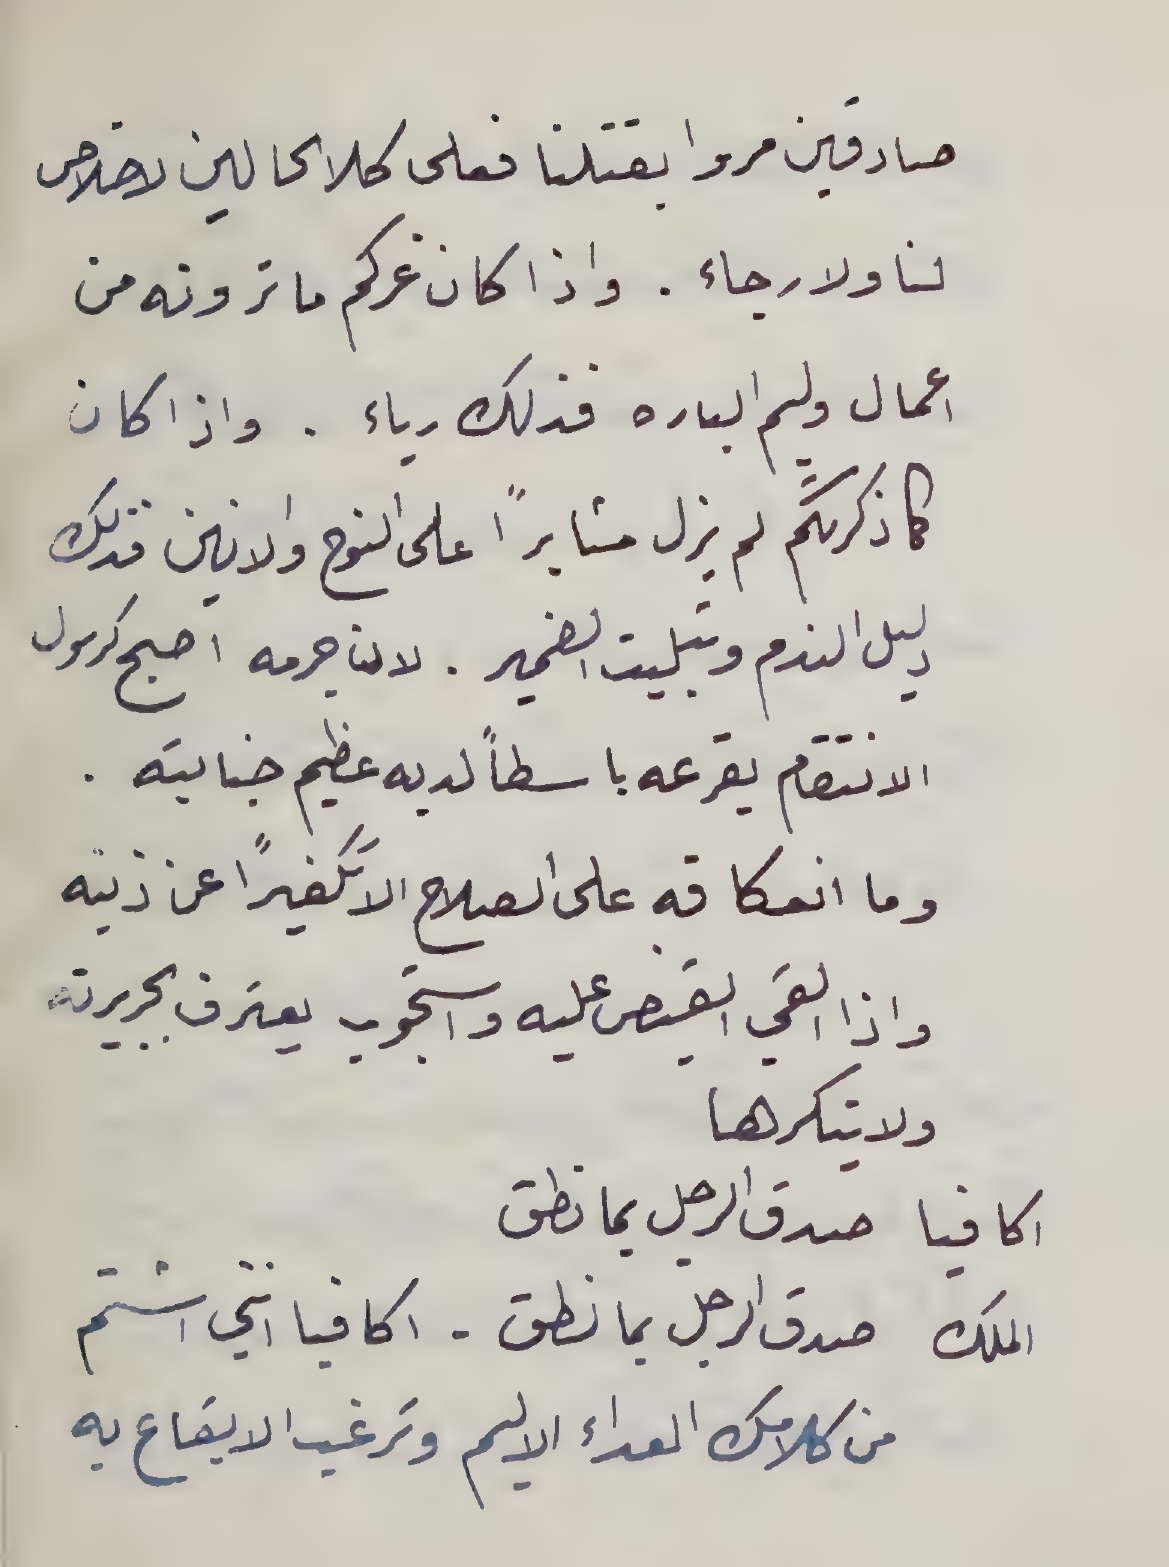 صادقين مروا بقتلنا فعلى كلا الحالين لا خلاص
لنا ولا رجاء . واذا كان غركم ما ترونه من
اعمال وليم الباره فذلك رياء . واذا كان
كما ذكرتم لم يزل مثابراً على النوح والانين فذلك
دليل الندم وتبكيت الضمير . لان جرمه اصبح كرسول
الانتقام يقرعه باسطاً لديه عظيم جنايته .
وما انعكافه على الصلاح الا تكفيرًا عن ذنبه
واذا القي القبض عليه واستجوب يعترف بجريرته
ولا ينكرها
اكافيا صدق الرجل بما نطق
الملك صدق الرجل بما نطق - اكافيا انني اشتم
من كلامك العداء لاليم وترغب الايقاع به